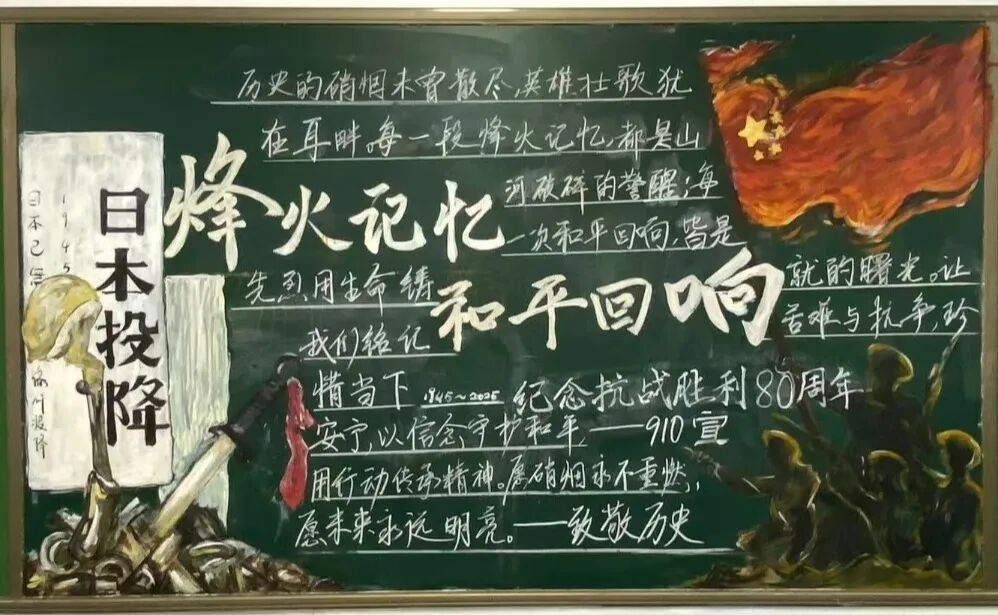 历史的硝烟未曾散尽,英雄壮歌犹
在耳畔。每一段烽火记忆,都是山
河破碎的警醒;每
一次和平回响,皆是
先烈用生命铸
就的曙光。让
我们铭记
苦难与抗争,珍
惜当下
安宁,以信念守护和平,
用行动传承精神。愿硝烟永不重燃,
愿未来永远明亮。——致敬历史
烽火记忆
和平回响
1945~2025 纪念抗战胜利80周年
——910宣
日本投降
1945
日本已
投降